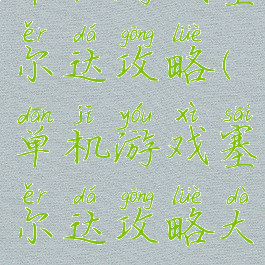 ěr dá gōng lüè
尔达攻略(
dān jī yóu xì sāi
单机游戏塞
ěr dá gōng lüè dà
尔达攻略大